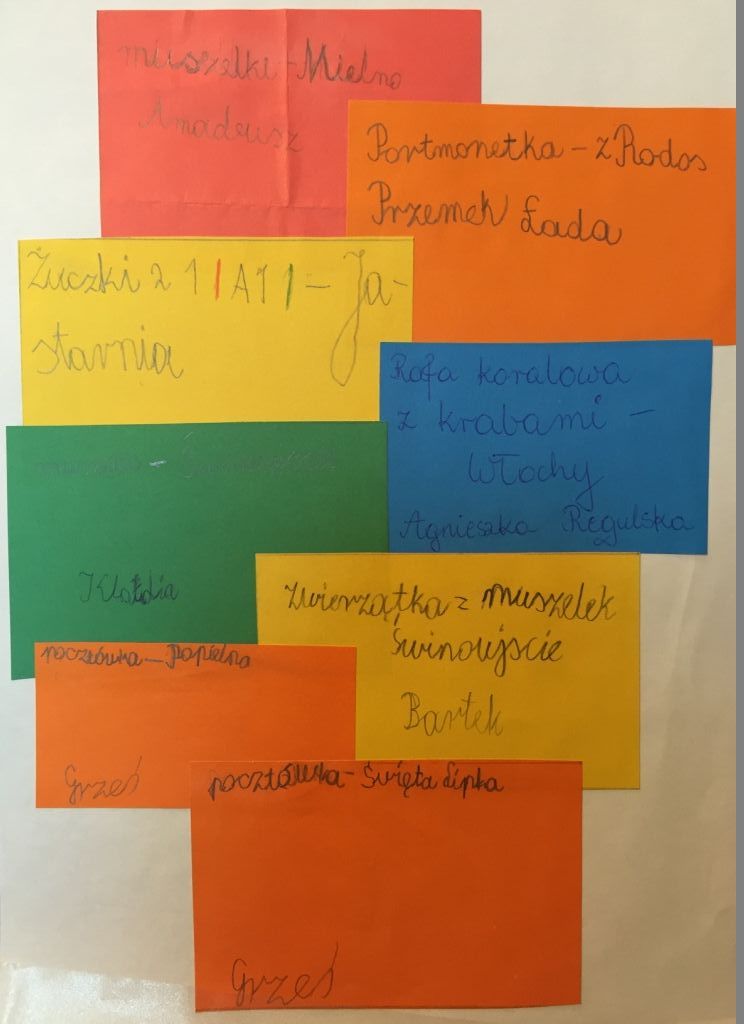 muszelki - Mielno
Amadeusz
Portmonetka - z Rodos
Przemek Łada
Żuczki 2 1 | A1 | - Ja-
starnia
Rafa koralowa
z krabami -
Włochy
Agnieszka Regulska
-
Klaudia
Zwierzątka z muszelek
Świnoujście
Bartek
pocztówka - Popielno
Grześ
pocztówka - Święta Lipka
Grześ